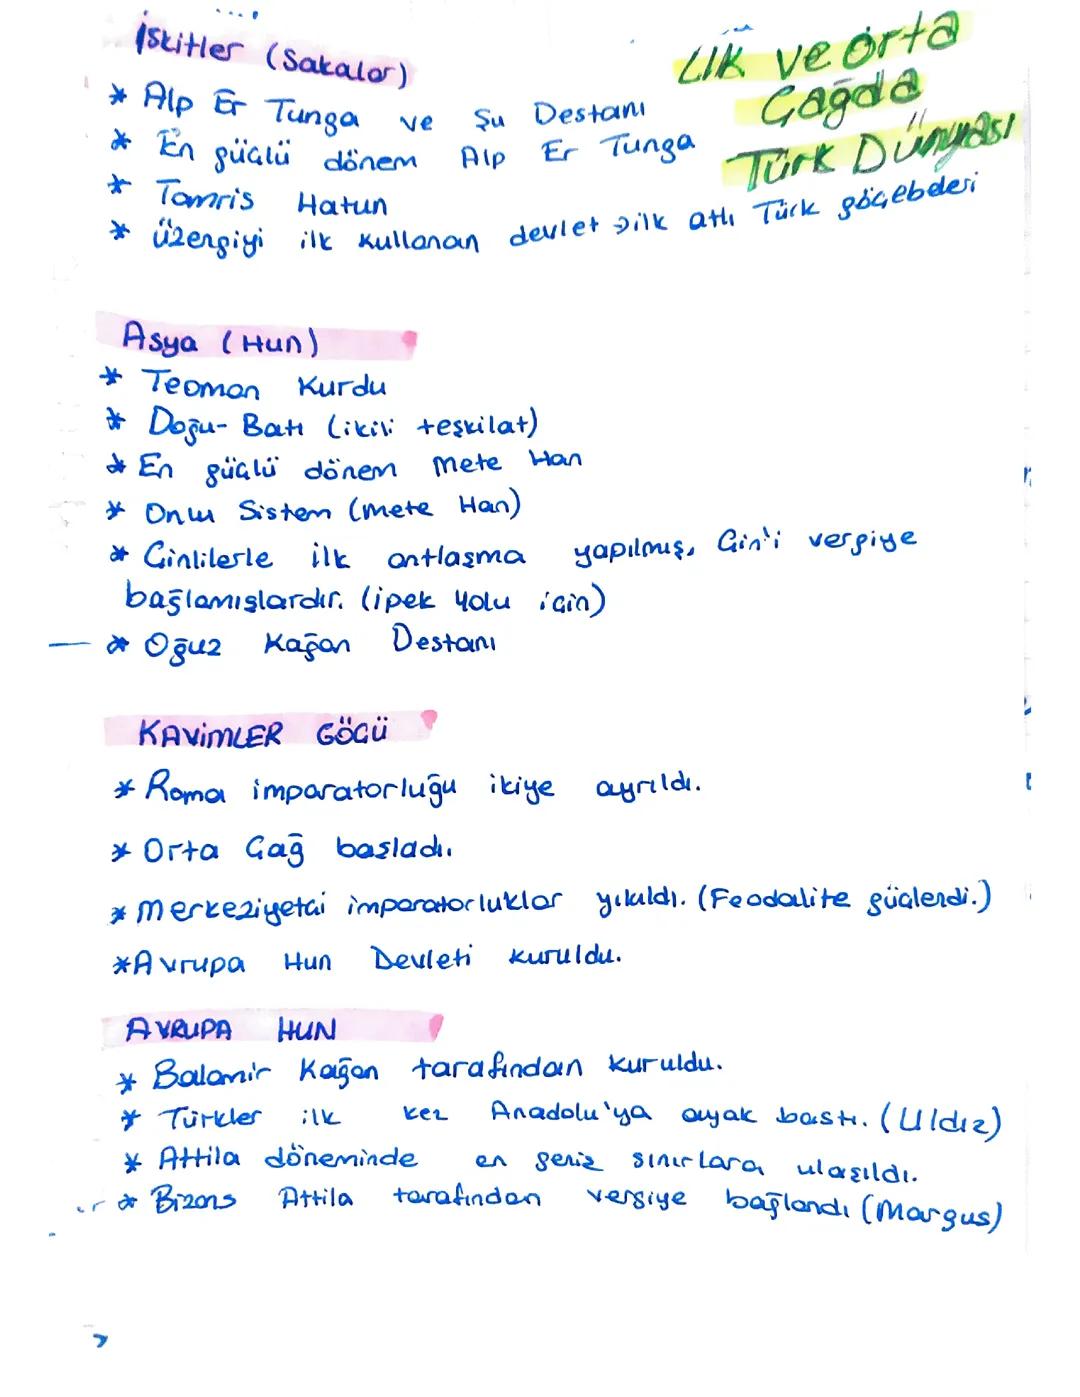 İskitler (Sakalar)
İlk ve Orta
Çağda
Türk Dünyası
* Alp Er Tunga ve Şu Destanı
* En güçlü dönem Alp Er Tunga
* Tomris Hatun
* üzengiyi ilk kullanan devlet → ilk atlı Türk göçebeleri
Asya (Hun)
* Teoman Kurdu
* Doğu-Batı (ikili teşkilat)
* En güçlü dönem Mete Han
* Onlu Sistem (Mete Han)
* Çinlilerle ilk antlaşma yapılmış, Çin'i vergiye
bağlamışlardır. (ipek Yolu için)
* Oğuz Kağan Destanı
KAVİMLER GÖÇÜ
* Roma imparatorluğu ikiye ayrıldı.
* Orta Çağ başladı.
* Merkeziyetçi imparatorluklar yıkıldı. (Feodalite güçlendi.)
* Avrupa Hun Devleti kuruldu.
AVRUPA HUN
* Balamir Kağan tarafından kuruldu.
* Türkler ilk kez Anadolu'ya ayak bastı. (Uldız)
* Attila döneminde en geniş sınırlara ulaşıldı.
* Bizans Attila tarafından vergiye bağlandı (Margus)